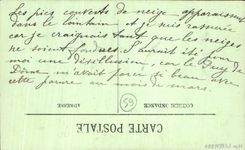 Les pics couverts de neige apparaissent
dans le lointain et je suis rassurée
car je craignais tant que les neiges
ne soient fondues. C'aurait été pour
moi une désillusion, car le Puy de
Dôme m'avait paru si beau avec
cette parure au mois de mars.
CARTE POSTALE
CORRESPONDANCE
ADRESSE